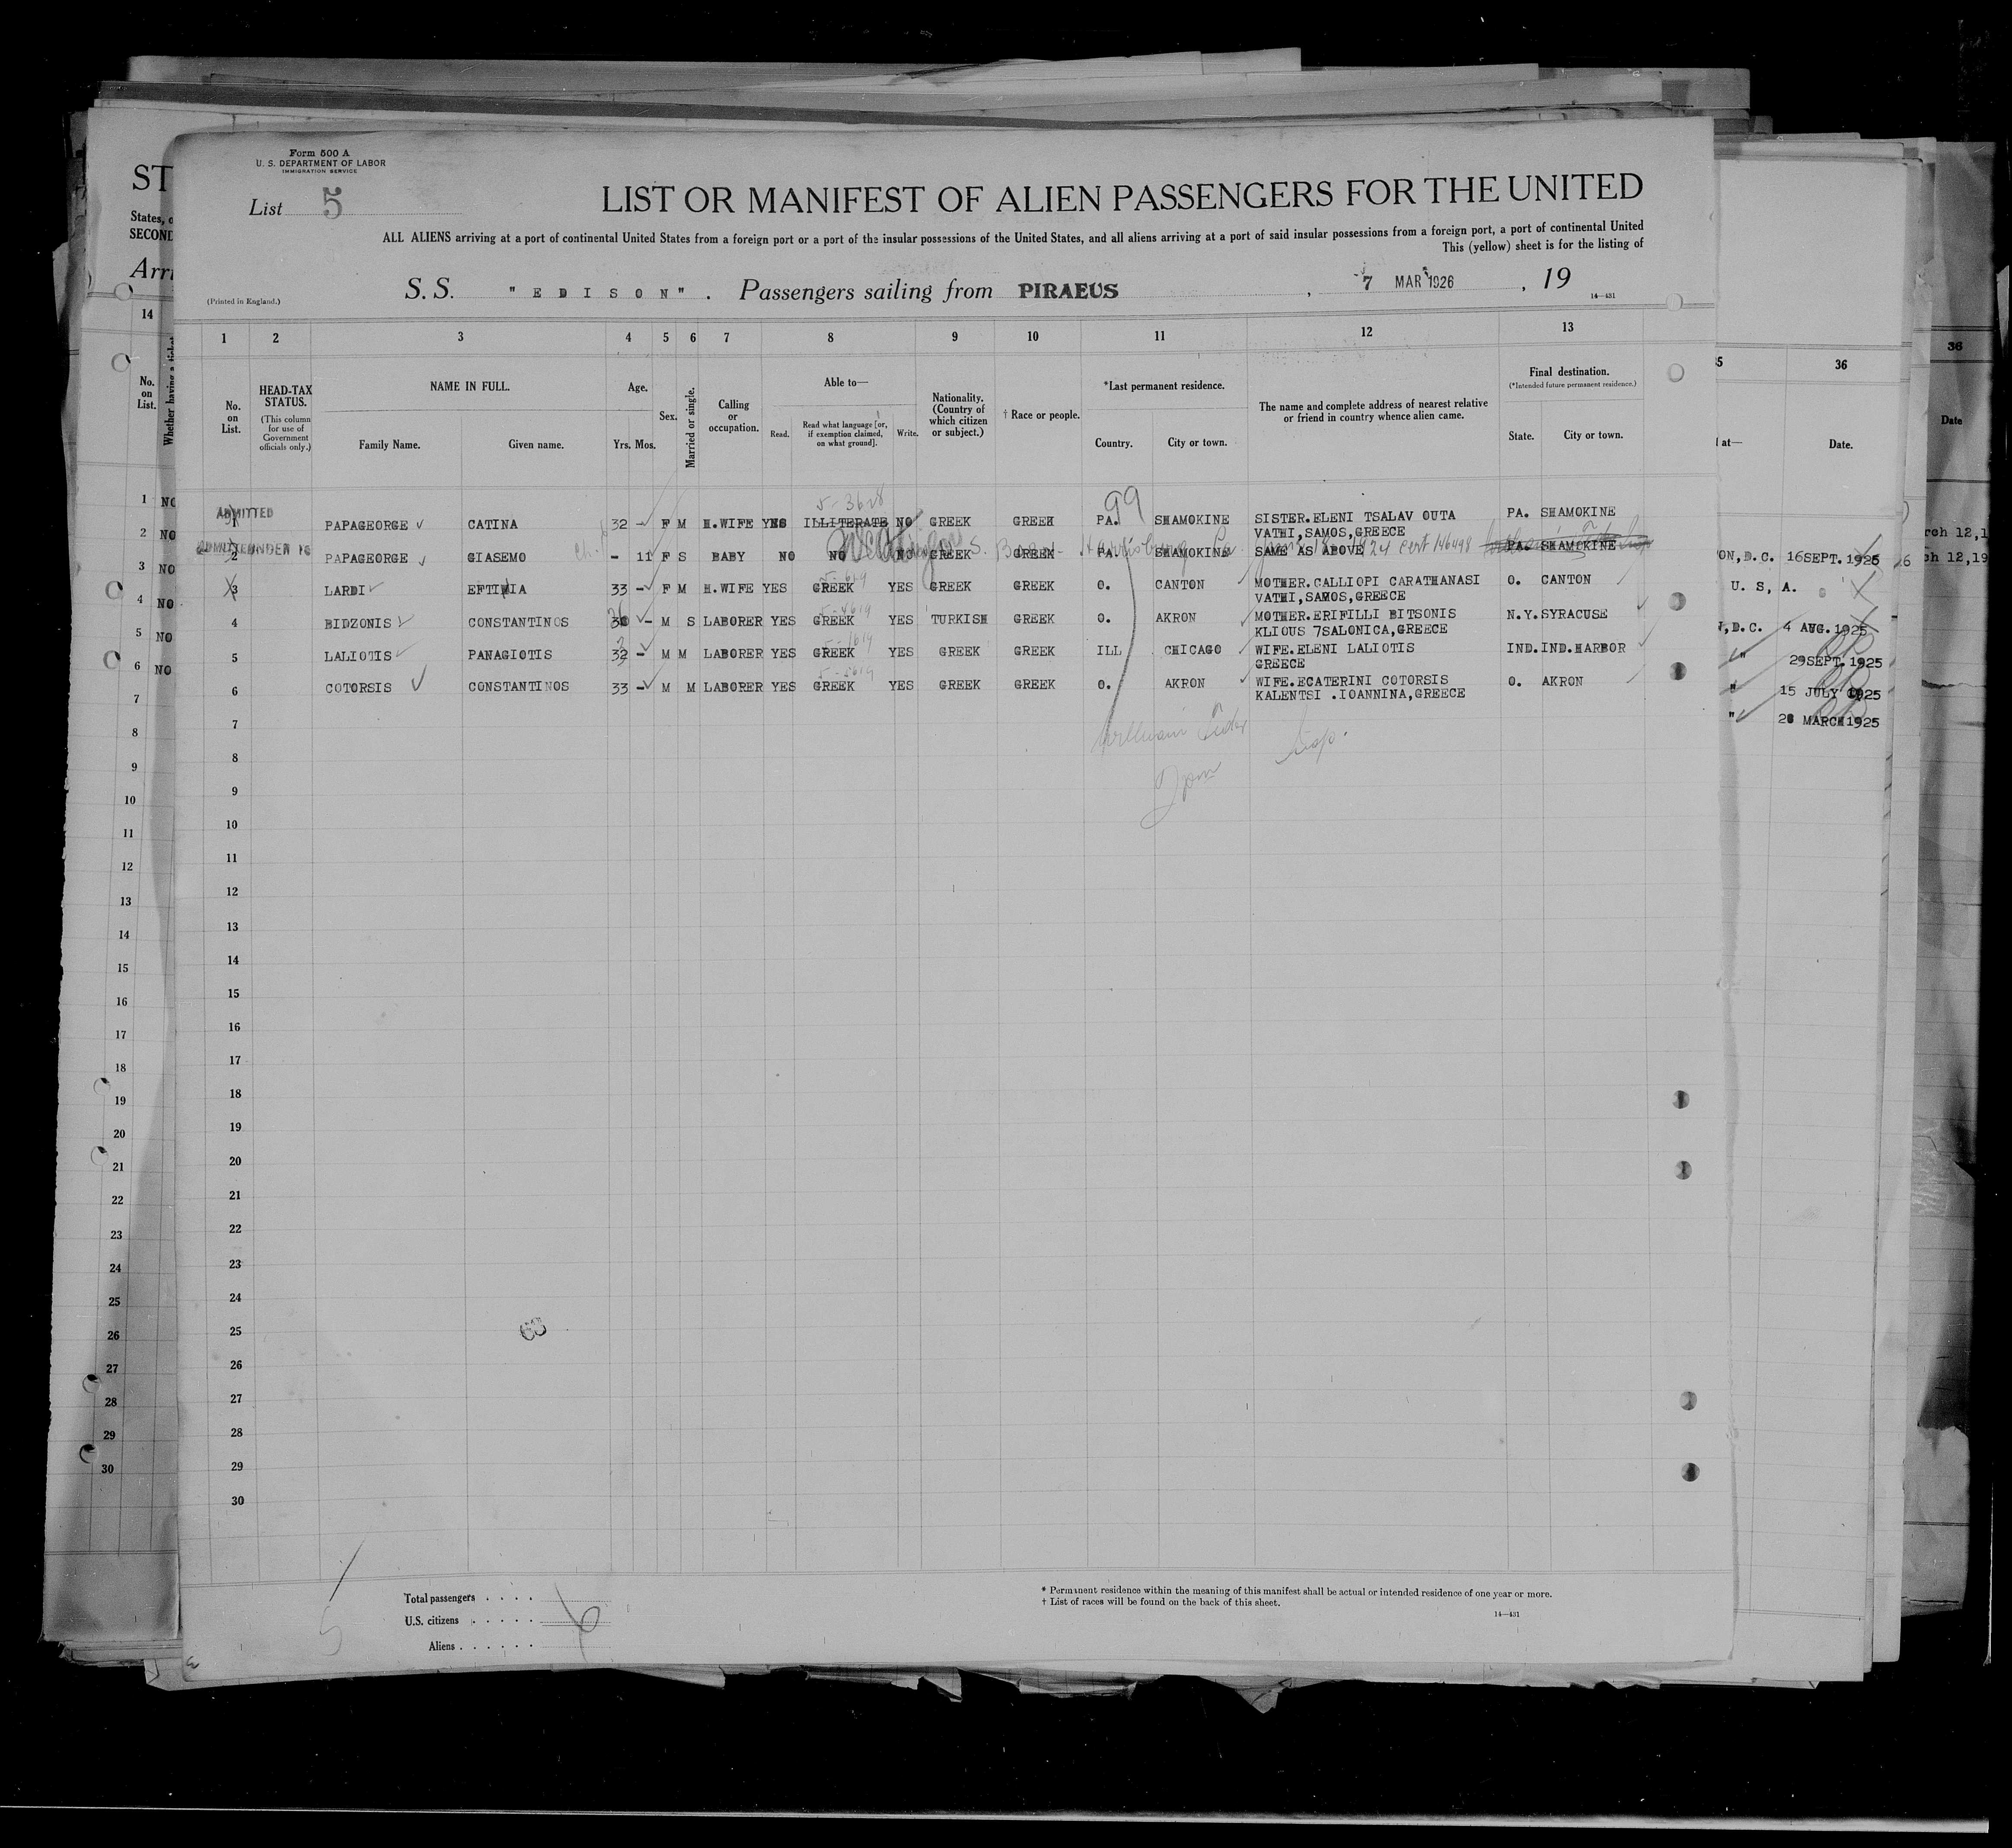 Form 500 A
U. S. DEPARTMENT OF LABOR
IMMIGRATION SERVICE
List 5
LIST OR MANIFEST OF ALIEN PASSENGERS FOR THE UNITED
ALL ALIENS arriving at a port of continental United States from a foreign port or a port of the insular possessions of the United States, and all aliens arriving at a port of said insular possessions from a foreign port, a port of continental United
This (yellow) sheet is for the listing of
(Printed in England.)
S. S. "EDISON". Passengers sailing from PIRAEUS, 7 MAR 1926, 19
14—431
1 2 3 4 5 6 7 8 9 10 11 12 13
No. on List.
HEAD-TAX STATUS.
(This column for use of Government officials only.)
NAME IN FULL.
Family Name. Given name.
Age.
Yrs. Mos.
Sex.
Married or single.
Calling or occupation.
Able to—
Read. Read what language [or, if exemption claimed, on what ground]. Write.
Nationality. (Country of which citizen or subject.)
† Race or people.
*Last permanent residence.
Country. City or town.
The name and complete address of nearest relative or friend in country whence alien came.
Final destination.
(*Intended future permanent residence.)
State. City or town.
5-3628
99
ADMITTED
1 PAPAGEORGE CATINA 32 - F M H.WIFE YES ILLITERATE NO GREEK GREEK PA. SHAMOKINE SISTER.ELENI TSALAV OUTA PA. SHAMOKINE
VATHI,SAMOS,GREECE
ADMITTED UNDER 16
2 PAPAGEORGE GIASEMO - 11 F S BABY NO NO NO GREEK GREEK PA. SHAMOKINE SAME AS ABOVE PA. SHAMOKINE
Cert 146498
3 LARDI EFTIMIA 33 - F M H.WIFE YES GREEK YES GREEK GREEK O. CANTON MOTHER.CALLIOPI CARATHANASI O. CANTON
VATHI,SAMOS,GREECE
4 BIDZONIS CONSTANTINOS - M S LABORER YES GREEK YES TURKISH GREEK O. AKRON MOTHER.ERIFILLI BITSONIS N.Y. SYRACUSE
KLIOUS 7SALONICA,GREECE
5 LALIOTIS PANAGIOTIS 32 - M M LABORER YES GREEK YES GREEK GREEK ILL CHICAGO WIFE.ELENI LALIOTIS IND. IND.HARBOR
GREECE
6 COTORSIS CONSTANTINOS 33 - M M LABORER YES GREEK YES GREEK GREEK O. AKRON WIFE.ECATERINI COTORSIS O. AKRON
KALENTSI .IOANNINA,GREECE
7
8
9
10
11
12
13
14
15
16
17
18
19
20
21
22
23
24
25
26
27
28
29
30
63
Total passengers
U.S. citizens
Aliens
6
* Permanent residence within the meaning of this manifest shall be actual or intended residence of one year or more.
† List of races will be found on the back of this sheet.
14—431
ST
States, o
SECOND
Arri
14
No. on List.
Whether having a ticket
1 NO
2 NO
3 NO
4 NO
5 NO
6 NO
7
8
9
10
11
12
13
14
15
16
17
18
19
20
21
22
23
24
25
26
27
28
29
30
35 36
d at— Date.
ON,D.C. 16SEPT.1925
U. S, A.
N,D.C. 4 AUG.1925
" 29SEPT.1925
" 15 JULY 1925
" 28 MARCH1925
36
Date
rch 12,1
ch 12,19